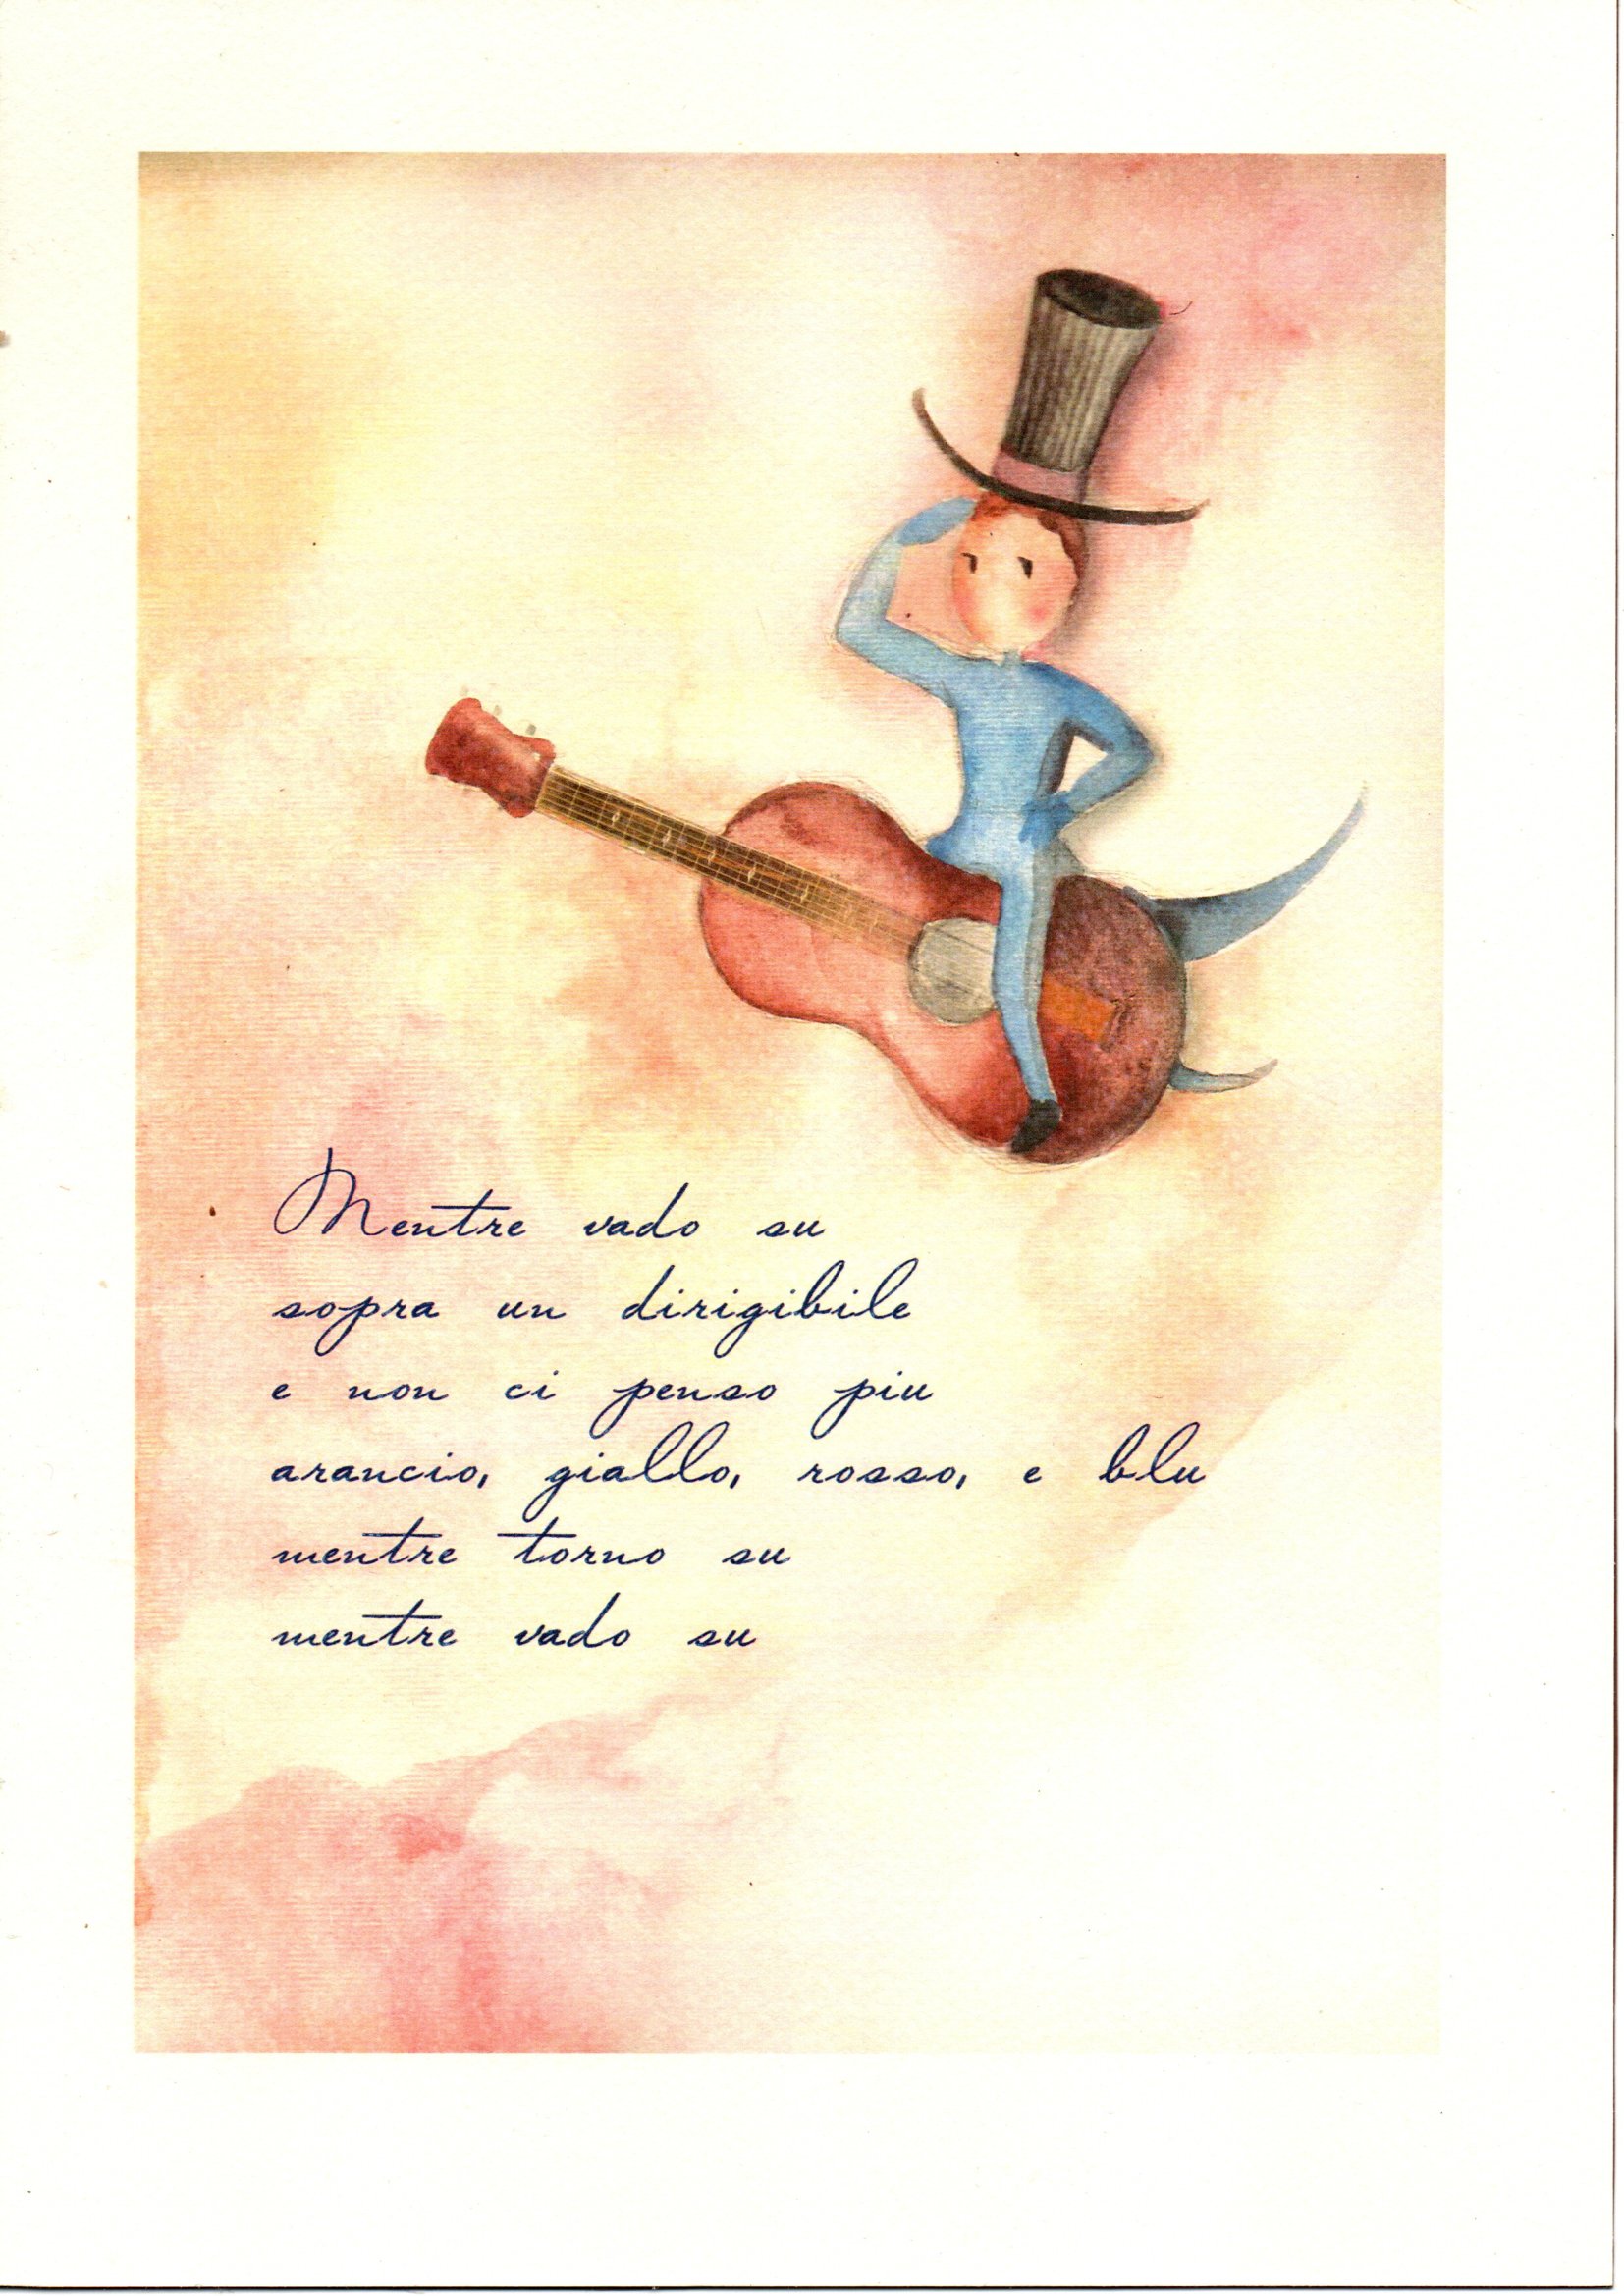 Mentre vado su
sopra un dirigibile
e non ci penso piu
arancio, giallo, rosso, e blu
mentre torno su
mentre vado su